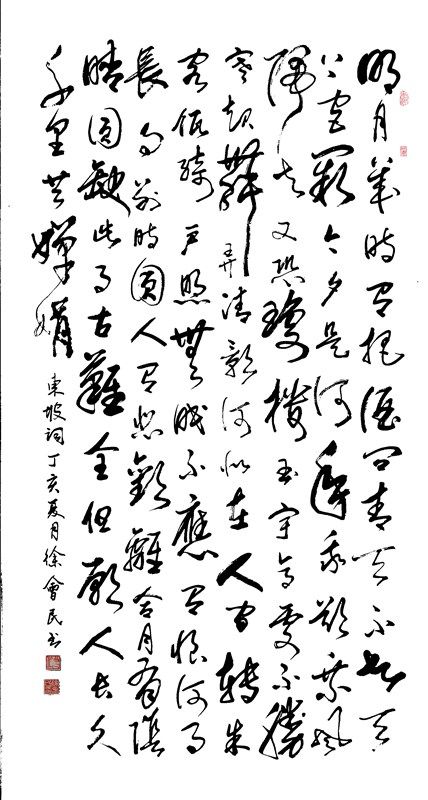 明月幾時有把酒問青天不知天
上宮闕今夕是何年我欲乘風
歸去又恐瓊樓玉宇高處不勝
寒起舞弄清影何似在人間轉朱
閣低綺戶照無眠不應有恨何事
長向別時圓人有悲歡離合月有陰
晴圓缺此事古難全但願人長久
千里共嬋娟
東坡詞丁亥夏月徐會民書